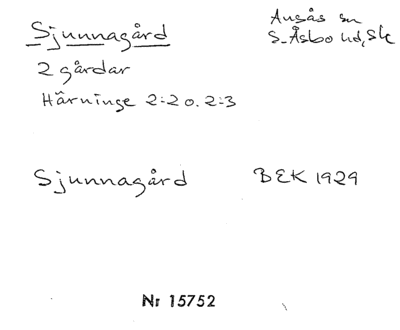 Sjunnagård
Ausås sn
S. Åsbo hd, Sk
2 gårdar
Härninge 2:2 o. 2:3
Sjunnagård BEK 1929
Nr 15752